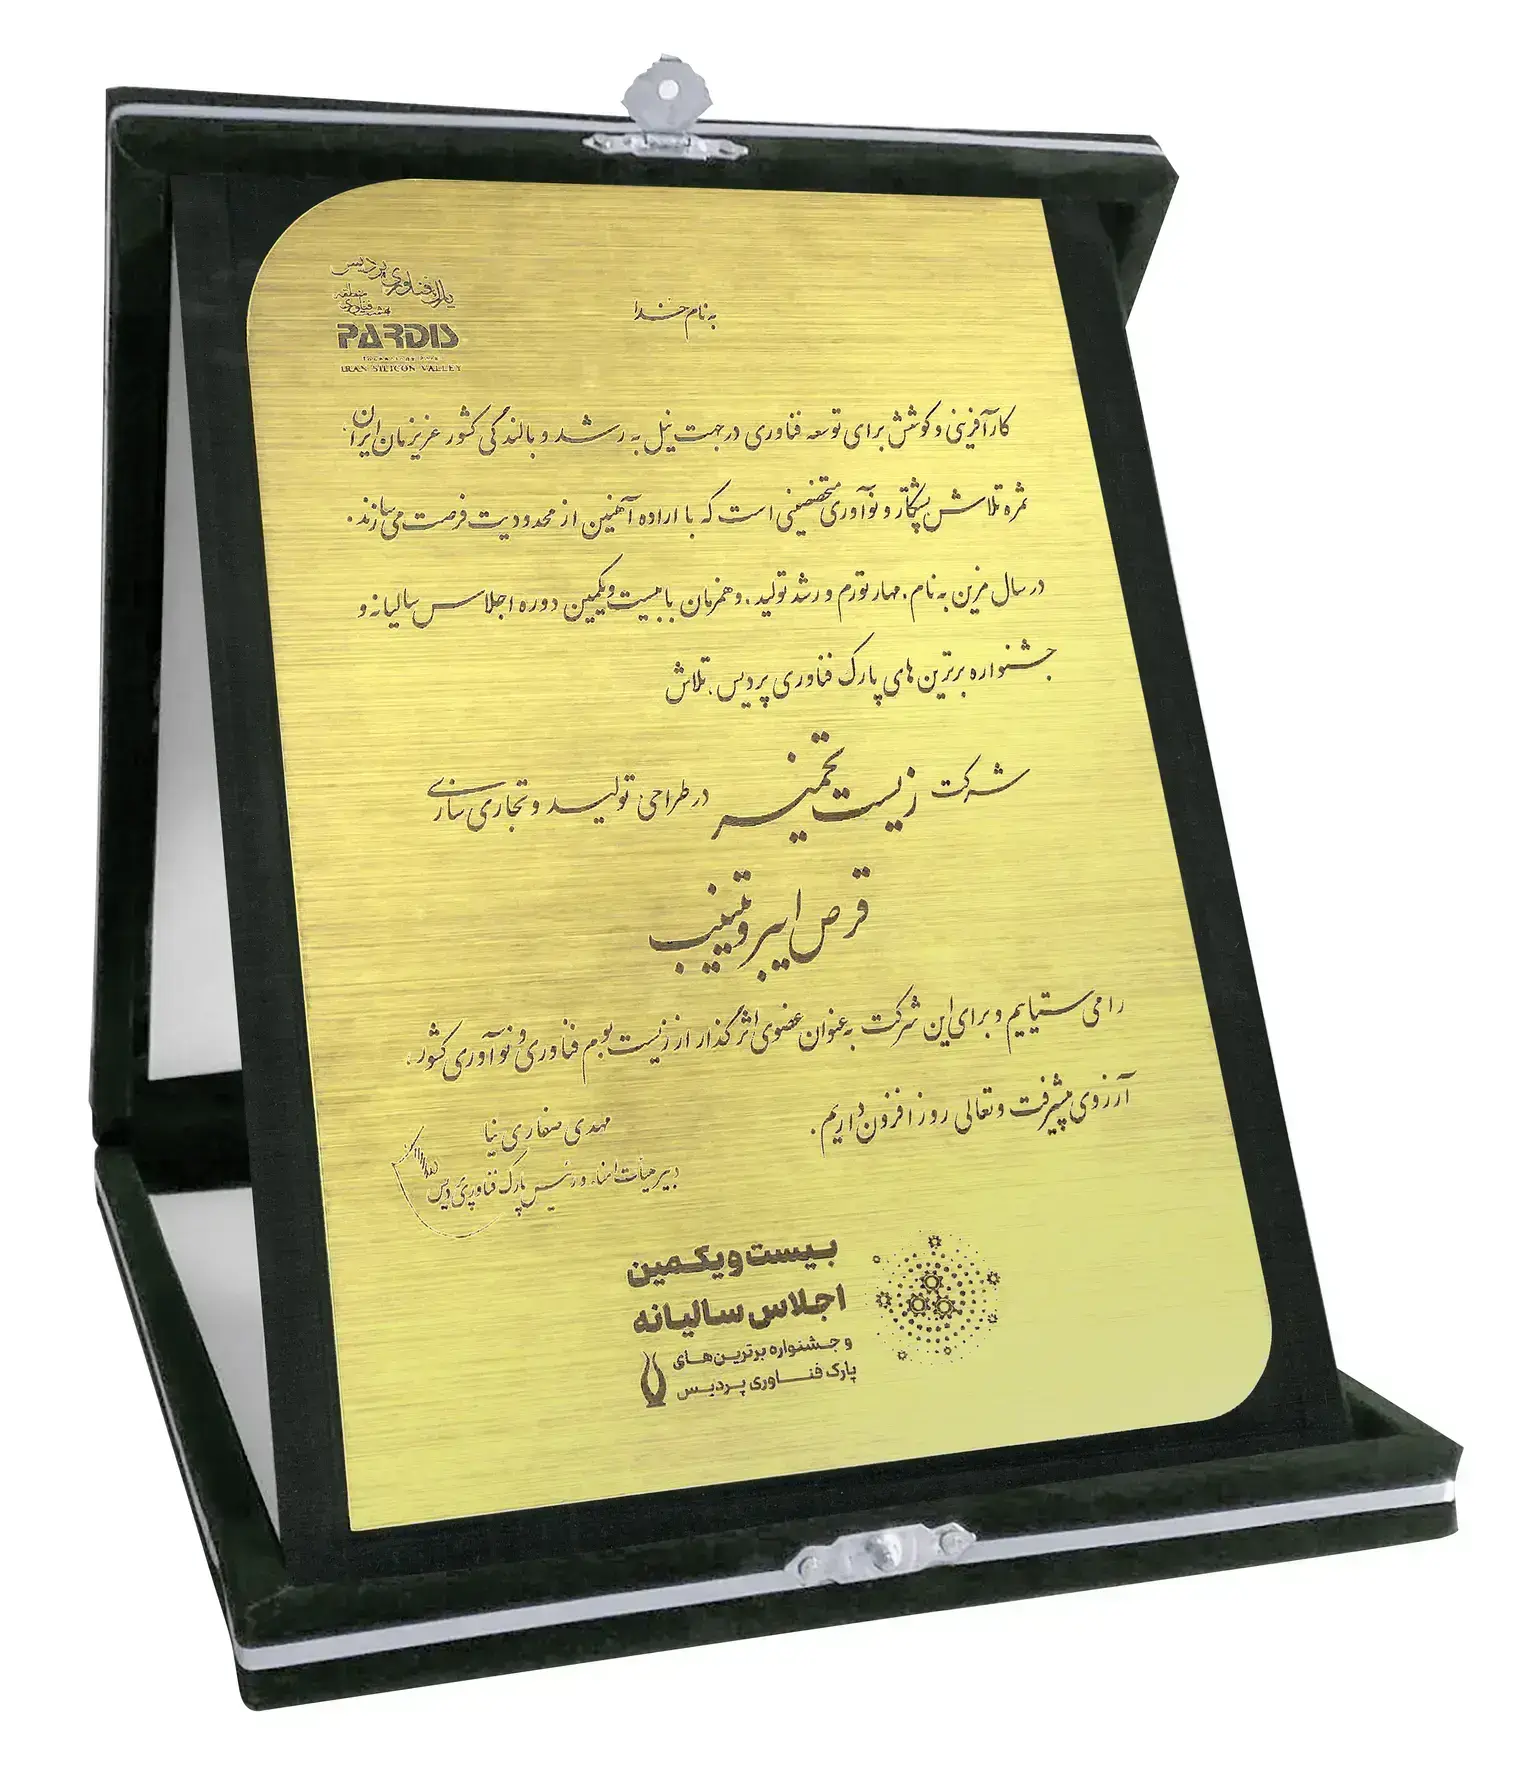 پارک فناوری پردیس
منطقه
PARDIS
Technology Park
IRAN SILICON VALLEY
به نام خدا
کارآفرینی و کوشش برای توسعه فناوری در جهت نیل به رشد و بالندگی کشور عزیزمان ایران،
ثمره تلاش پشتکار و نوآوری متخصصینی است که با اراده آهنین از محدودیت فرصت می‌سازند.
در سال مزین به نام، مهار تورم و رشد تولید، و همزمان با بیست و یکمین دوره اجلاس سالیانه و
جشنواره برترین های پارک فناوری پردیس، تلاش
شرکت زیست تخمیر در طراحی، تولید و تجاری سازی
قرص ایبروتینیب
را می ستیاییم و برای این شرکت به عنوان عضوی اثرگذار از زیست بوم فناوری و نوآوری کشور،
آرزوی پیشرفت و تعالی روز افزون داریم.
مهدی صفاری نیا
دبیر هیأت امناء و رئیس پارک فناوری پردیس
بیست و یکمین
اجلاس سالیانه
و جشنواره برترین‌های
پارک فناوری پردیس